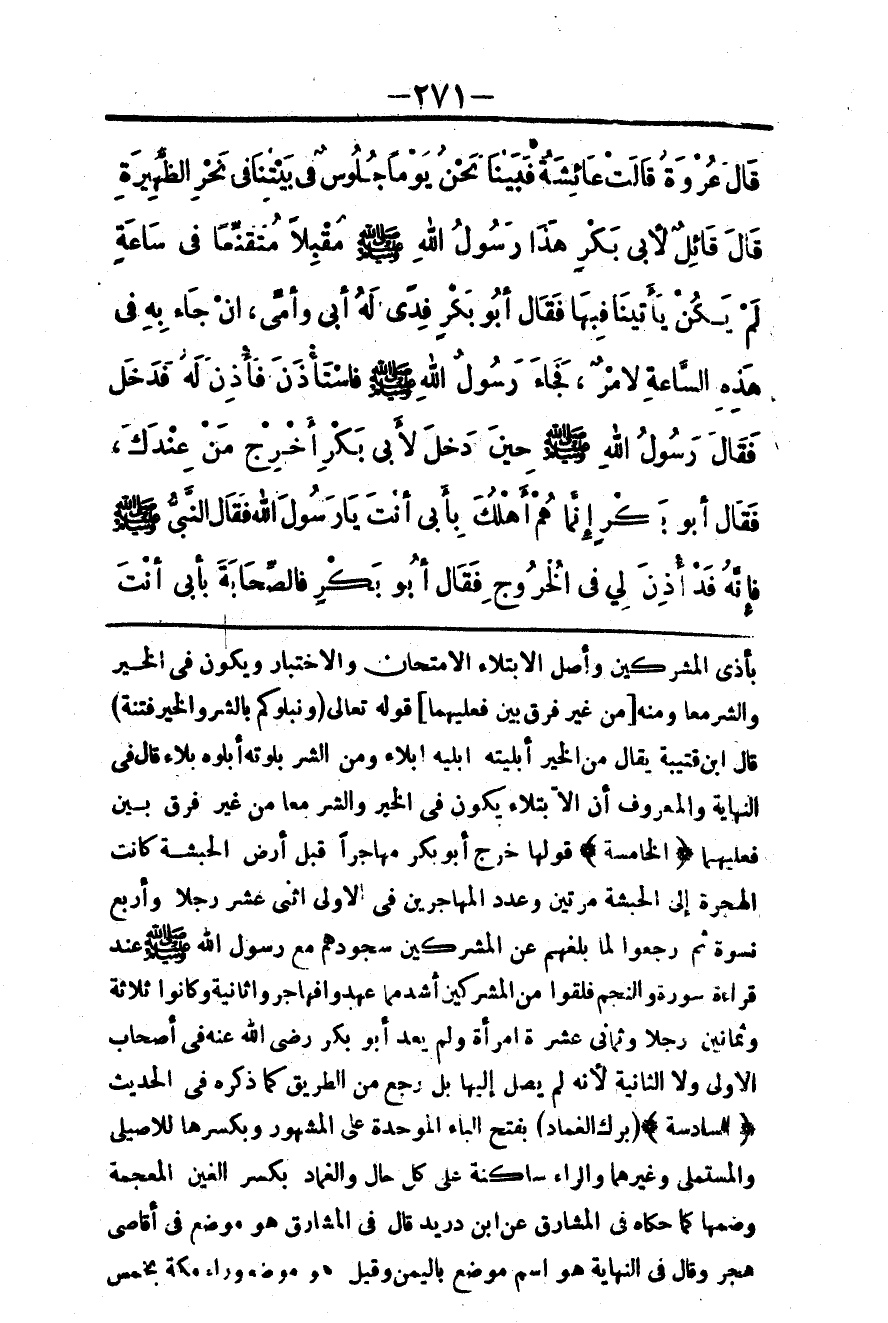 -٢٧١-
قَالَ عُرْوَةُ قَالَتْ عَائِشَةُ فَبَيْنَا نَحْنُ يَوْمًا جُلُوسٌ فِى بَيْتِنَا فِى نَحْرِ الظَّهِيرَةِ
قَالَ قَائِلٌ لأَبِى بَكْرٍ هَذَا رَسُولُ اللهِ ﷺ مُقْبِلاً مُتَقَنِّعًا فِى سَاعَةٍ
لَمْ يَكُنْ يَأْتِينَا فِيهَا فَقَالَ أَبُو بَكْرٍ فِدًى لَهُ أَبِى وأُمِّى، انْ جَاءَ بِهِ فِى
هَذِهِ السَّاعَةِ لامْرٌ، فَجَاءَ رَسُولُ اللهِ ﷺ فاسْتَأْذَنَ فَأَذِنَ لَهُ فَدَخَلَ
فَقَالَ رَسُولُ اللهِ ﷺ حِينَ دَخلَ لأَبِى بَكْرٍ أَخْرِجْ مَنْ عِنْدَكَ،
فَقَالَ أَبو بَكْرٍ إِنَّمَا هُمْ أَهْلُكَ بِأَبِى أَنْتَ يَارَسُولَ الله فَقَالَ النَّبِىُّ ﷺ
فإِنَّهُ قَدْ أُذِنَ لِي فى الْخُرُوجِ فَقَال أَبُو بَكْرٍ فالصِّحَابَةَ بأَبِى أَنْتَ
بأذى المشركين وأصل الابتلاء الامتحان والاختبار ويكون فى الخير
والشر معا ومنه [من غير فرق بين فعليهما] قوله تعالى (ونبلوكم بالشر والخير فتنة)
قال ابن قتيبة يقال من الخير أبليته ابليه ابلاء ومن الشر بلوته أبلوه بلاء قال فى
النهاية والمعروف أن الابتلاء يكون فى الخير والشر معا من غير فرق بين
فعليهما ﴿الخامسة﴾ قولها خرج أبو بكر مهاجراً قبل أرض الحبشة كانت
الهجرة إلى الحبشة مرتين وعدد المهاجرين فى الاولى اثنى عشر رجلا وأربع
نسوة ثم رجعوا لما بلغهم عن المشركين سجودهم مع رسول الله ﷺ عند
قراءة سورة والنجم فلقوا من المشركين أشد مما عهدوا فهاجروا ثانية وكانوا ثلاثة
وثمانين رجلا وثمانى عشرة امرأة ولم يعد أبو بكر رضى الله عنه فى أصحاب
الاولى ولا الثانية لأنه لم يصل إليها بل رجع من الطريق كما ذكره فى الحديث
﴿السادسة﴾ (برك الغماد) بفتح الباء الموحدة على المشهور وبكسرها للاصيلى
والمستملى وغيرهما والراء ساكنة على كل حال والغماد بكسر الغين المعجمة
وضمها كما حكاه فى المشارق عن ابن دريد قال فى المشارق هو موضع فى أقاصى
هجر وقال فى النهاية هو اسم موضع باليمن وقيل هو موضع وراء مكة بخمس